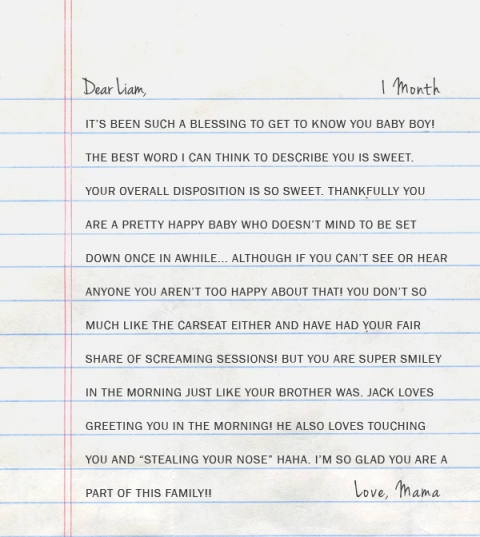 Dear Liam, 1 Month
IT'S BEEN SUCH A BLESSING TO GET TO KNOW YOU BABY BOY!
THE BEST WORD I CAN THINK TO DESCRIBE YOU IS SWEET.
YOUR OVERALL DISPOSITION IS SO SWEET. THANKFULLY YOU
ARE A PRETTY HAPPY BABY WHO DOESN'T MIND TO BE SET
DOWN ONCE IN AWHILE... ALTHOUGH IF YOU CAN'T SEE OR HEAR
ANYONE YOU AREN'T TOO HAPPY ABOUT THAT! YOU DON'T SO
MUCH LIKE THE CARSEAT EITHER AND HAVE HAD YOUR FAIR
SHARE OF SCREAMING SESSIONS! BUT YOU ARE SUPER SMILEY
IN THE MORNING JUST LIKE YOUR BROTHER WAS. JACK LOVES
GREETING YOU IN THE MORNING! HE ALSO LOVES TOUCHING
YOU AND “STEALING YOUR NOSE” HAHA. I'M SO GLAD YOU ARE A
PART OF THIS FAMILY!! Love, Mama